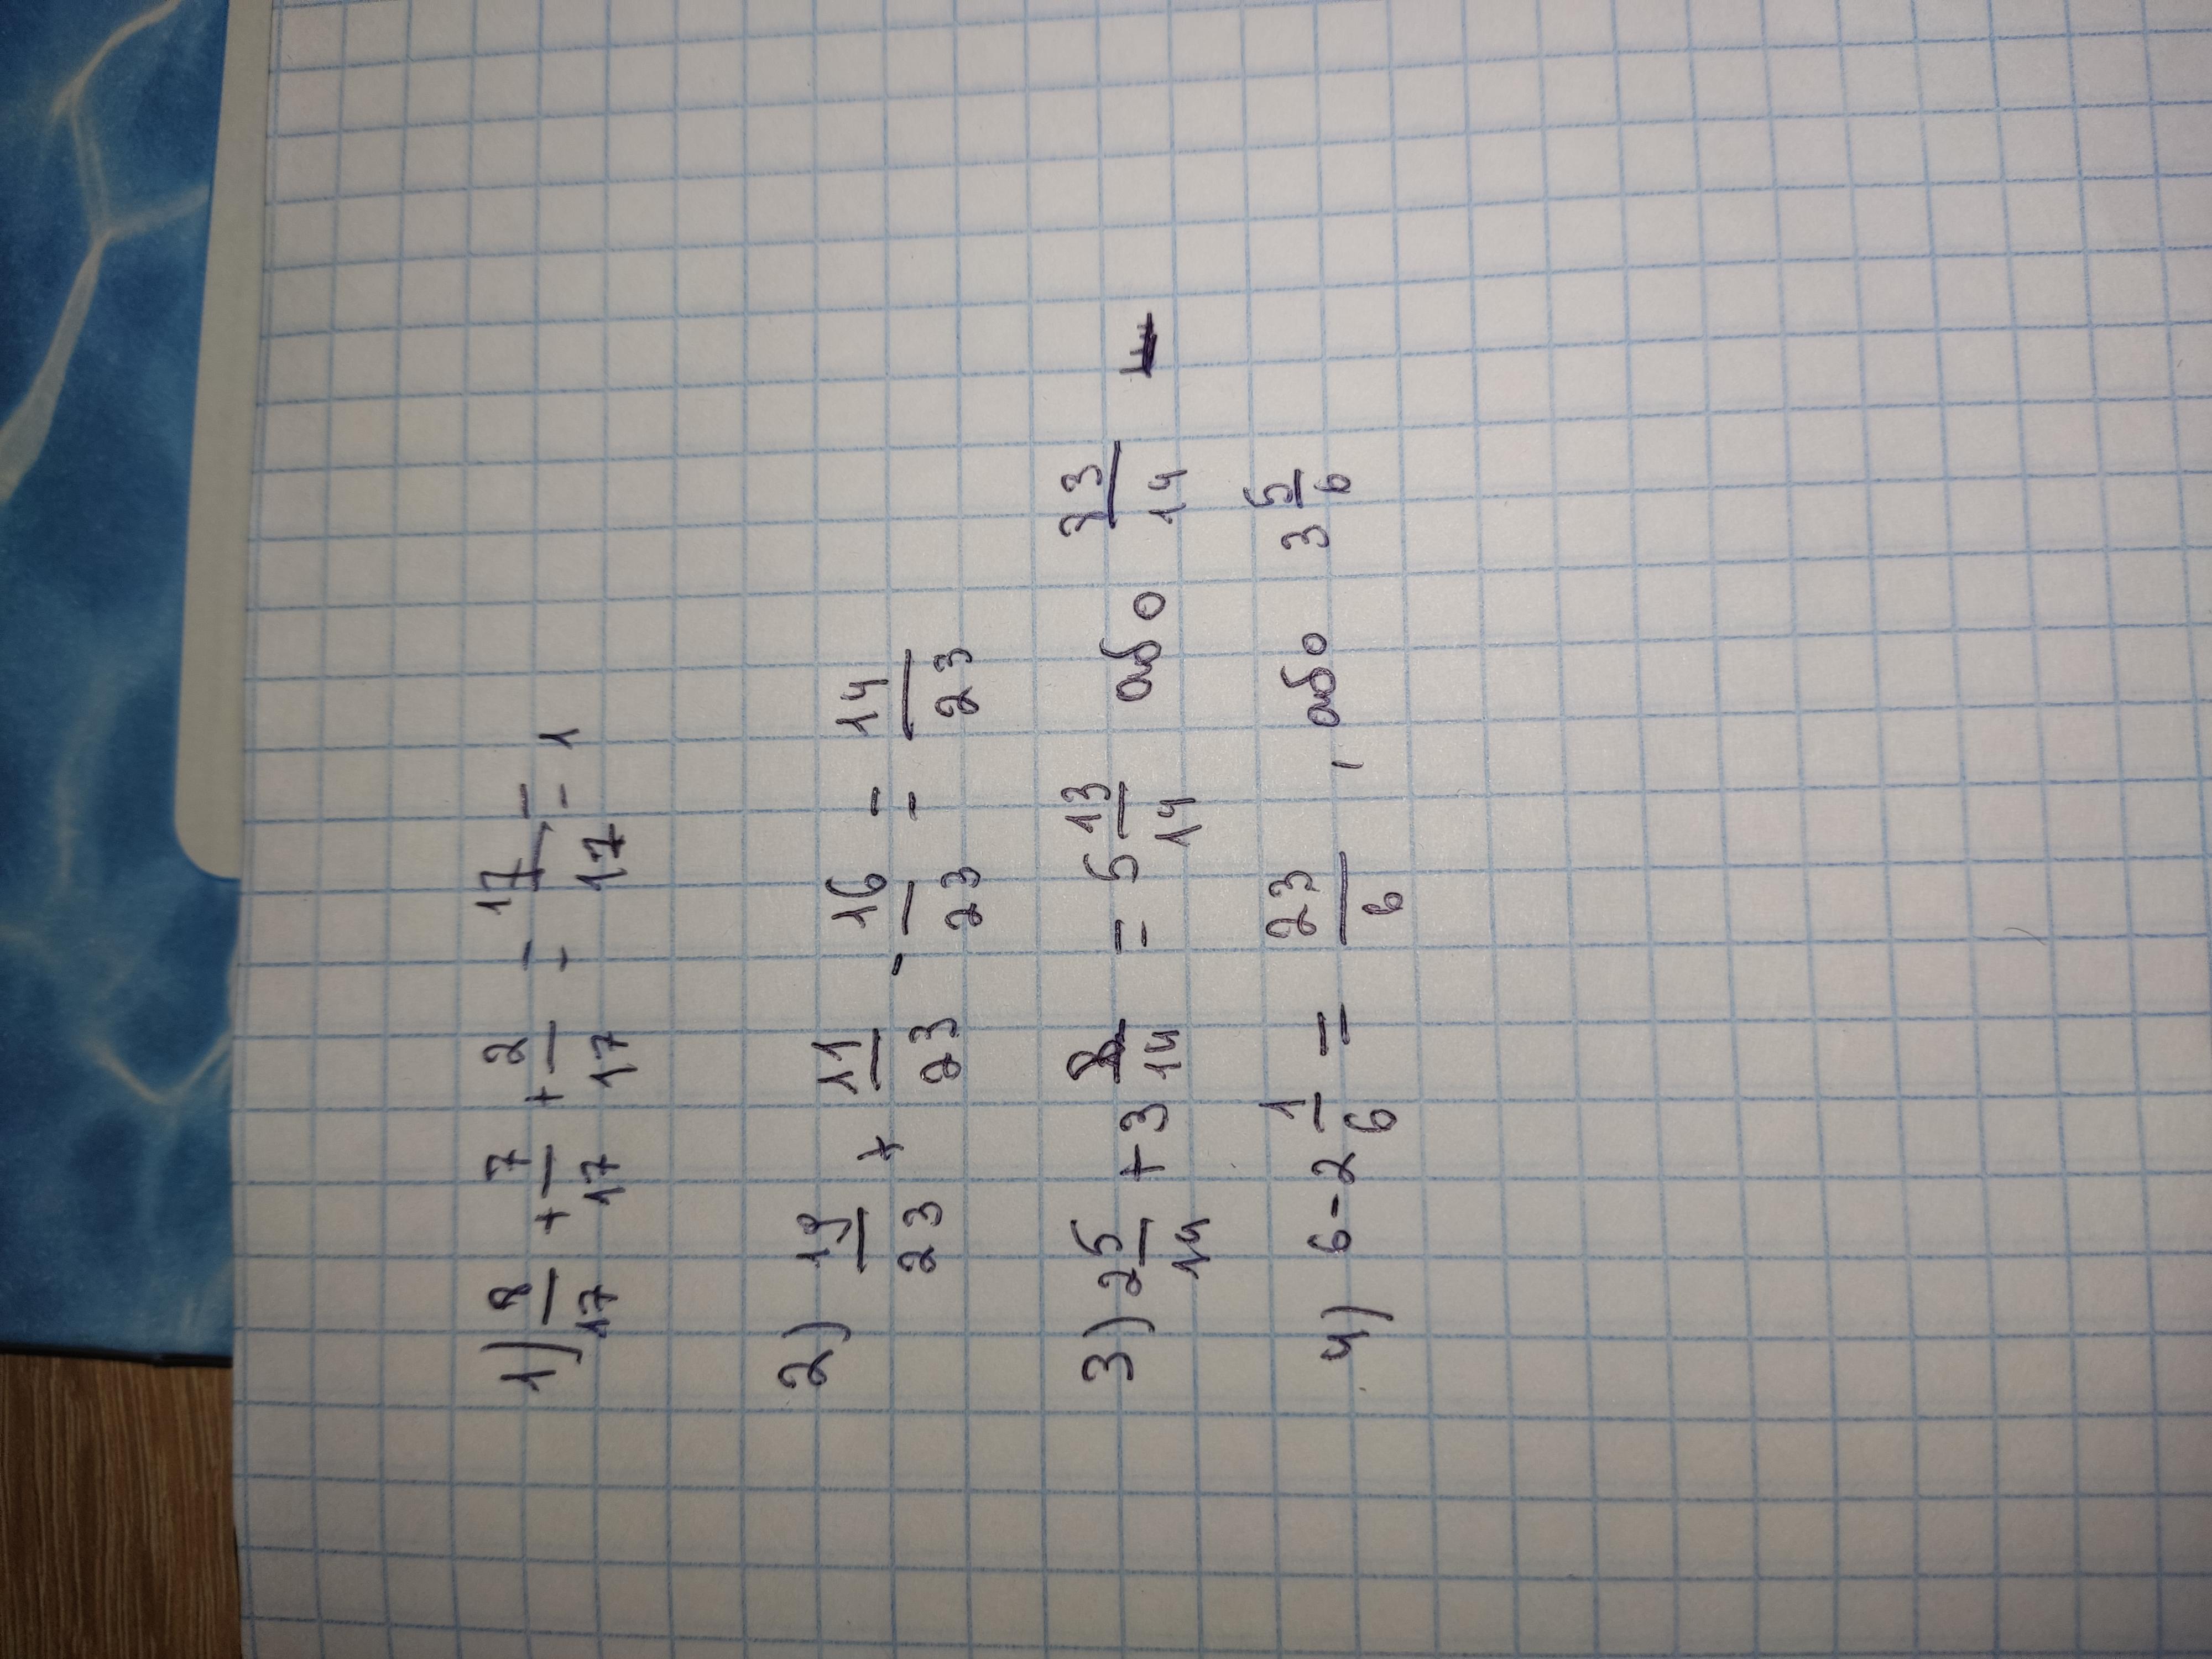 1) 8/17 + 7/17 + 2/17 = 17/17 = 1
2) 19/23 + 11/23 - 16/23 = 14/23
3) 2 5/14 + 3 8/14 = 5 13/14 або 23/14
4) 6 - 2 1/6 = 23/6 , або 3 5/6